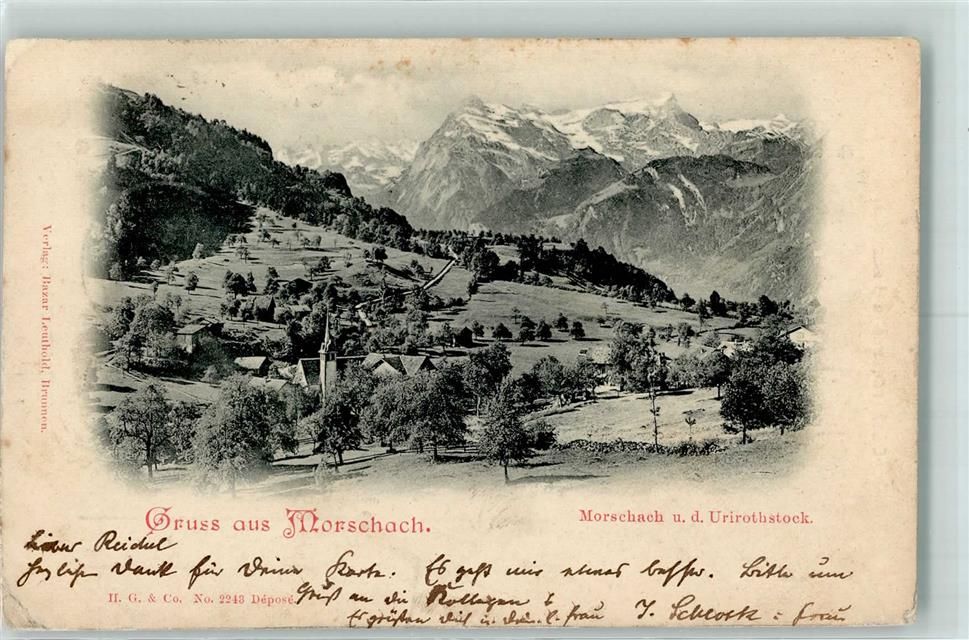 Verlag: Bazar Leuthold, Brunnen.
Gruss aus Morschach.
Morschach u. d. Urirothstock.
Lieber Reichel
Herzlichen Dank für Deine Karte. Es geht mir etwas besser. Bitte um
H. G. & Co. No. 2243 Déposé.
Gruß an die Kollegen &
Es grüßen Dich u. Frau J. Schlosk Frau